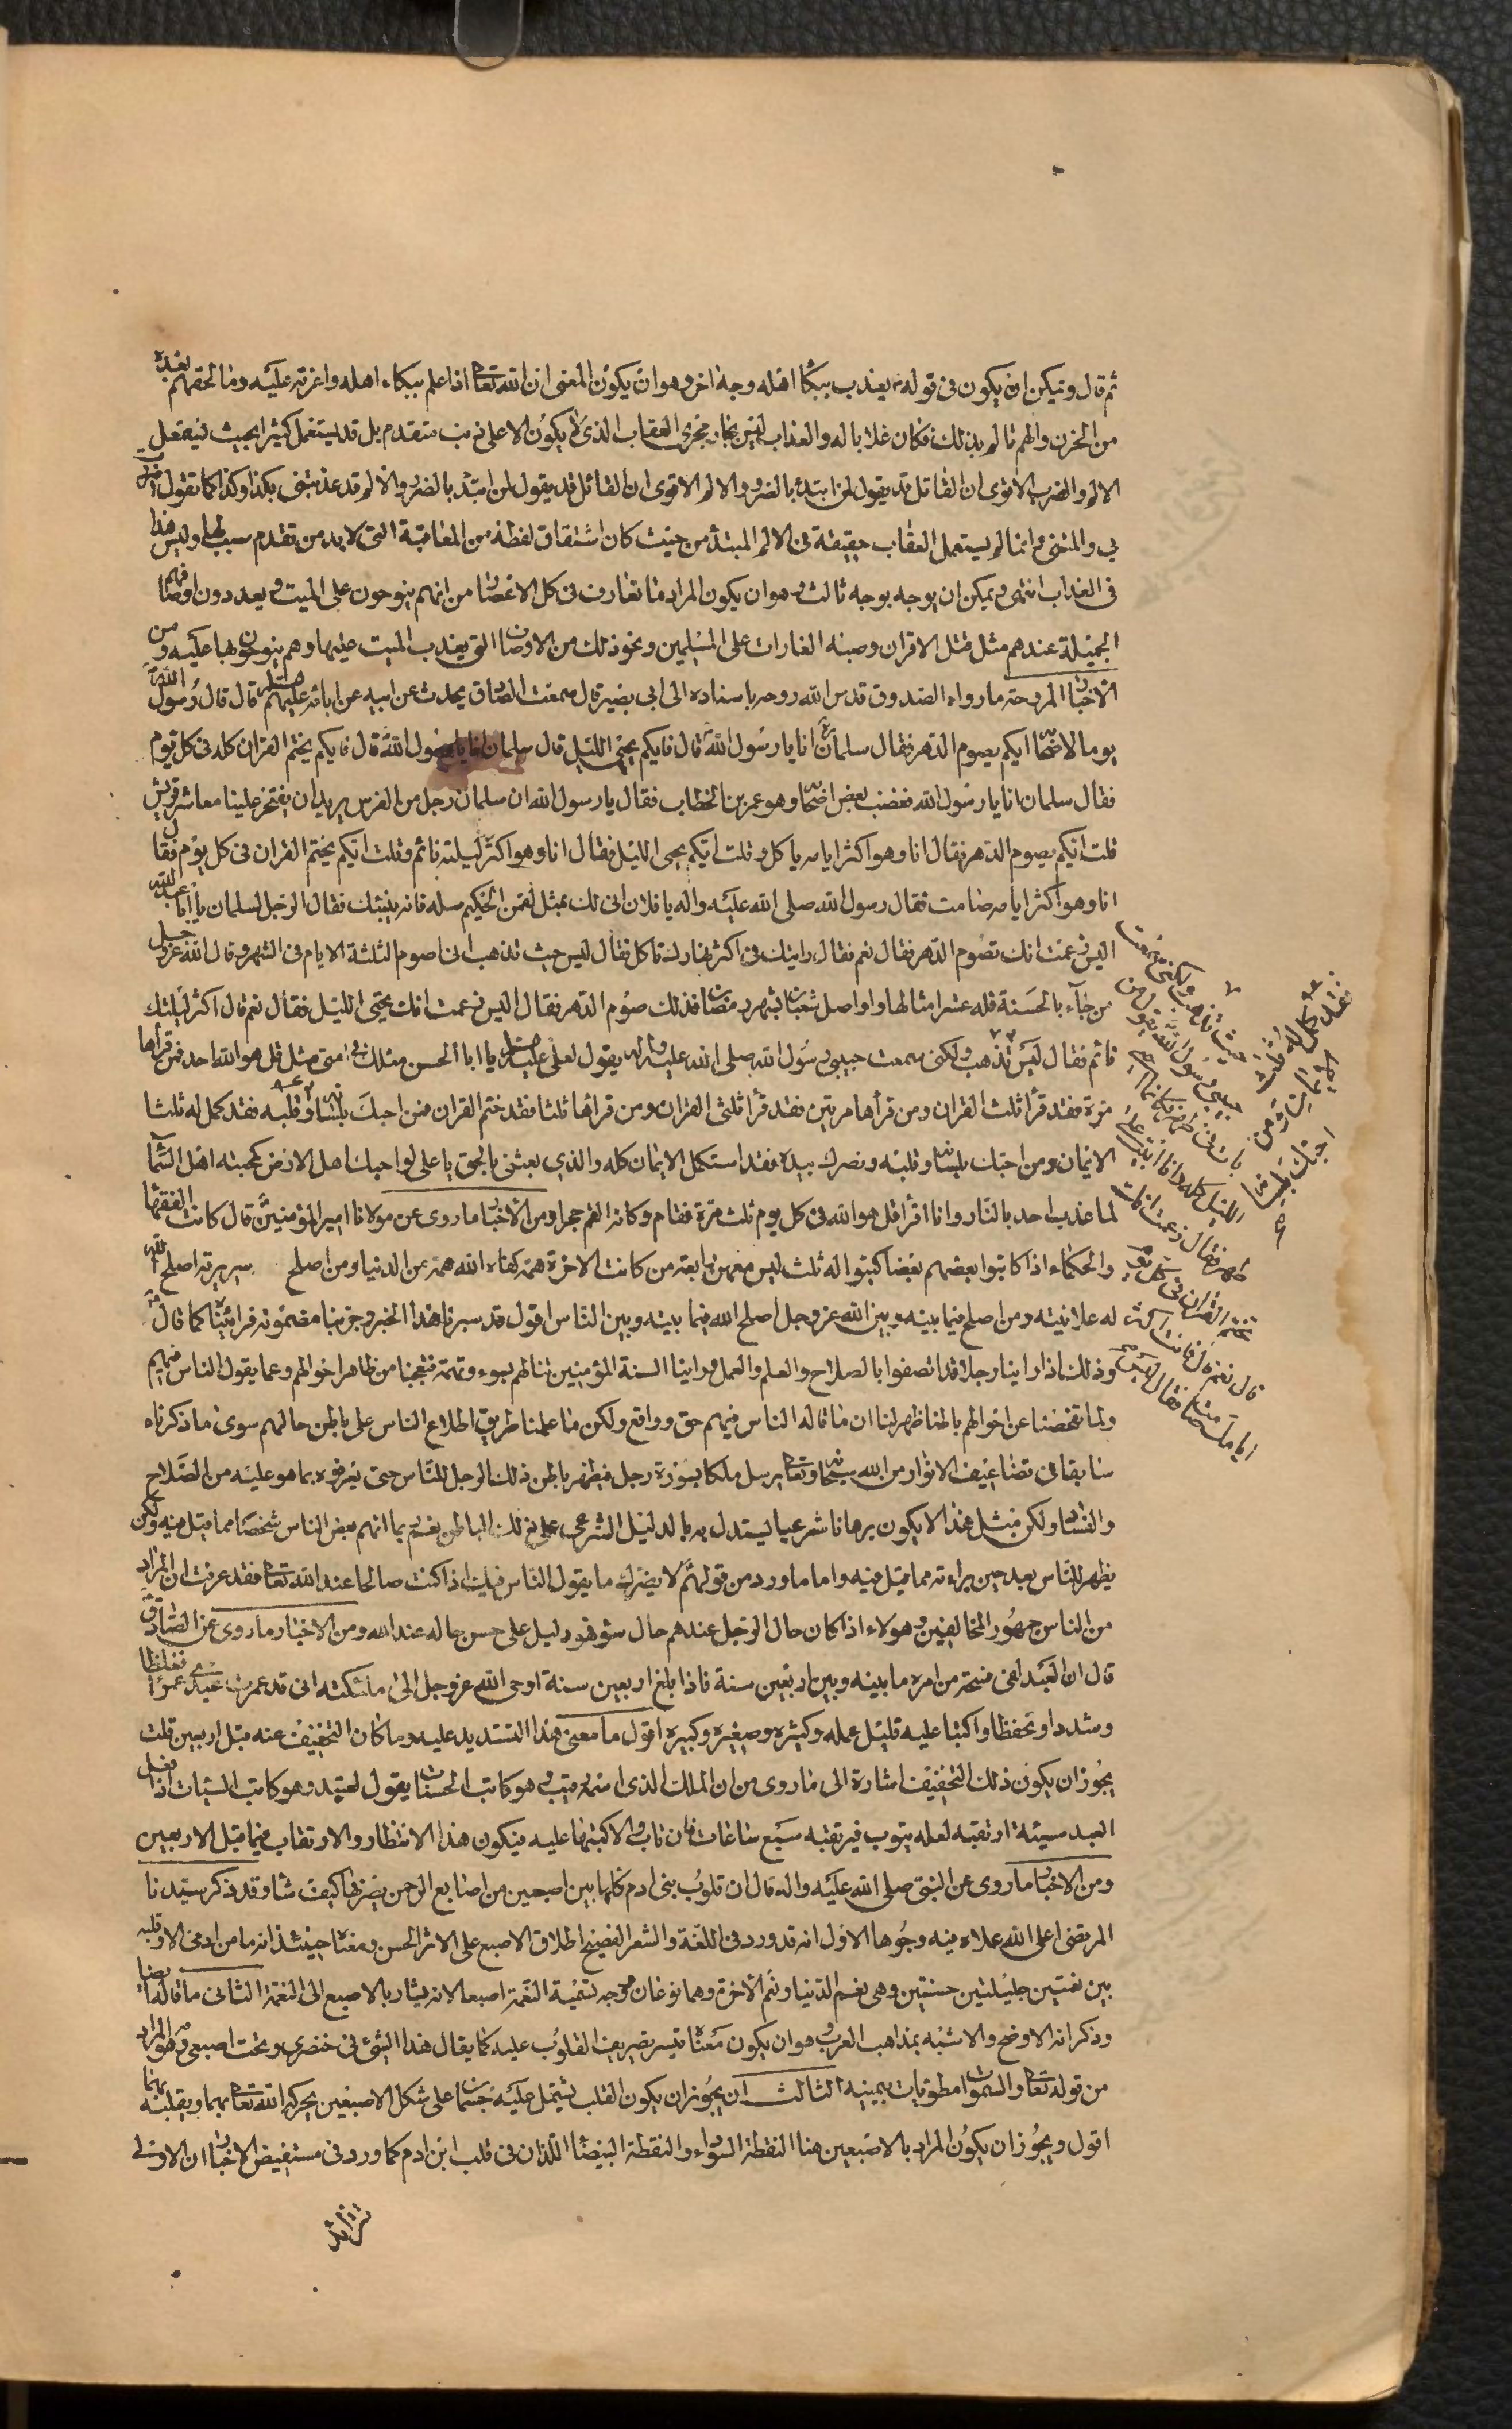 ثم قال ويمكن ان يكون فى قوله يعذب ببكاء اهله وجه اخر وهو ان يكون المعنى ان الله تعالى اذا علم ببكاء اهله واعزته عليه وما لحقهم بعده
من الحزن والهم تالم بذلك فكان عذابا له والعذاب ليس بجار مجرى العقاب الذى لا يكون الا على ذنب متقدم بل قد يستعمل كثيرا بحيث يستعمل
الالم والضرر الا ترى ان القائل قد يقول لمن ابتدئه بالضرر والالم الا ترى ان القائل قد يقول لمن ابتدء بالضرر والالم قد عذبتنى بكذا وكذا كما تقول اضررت
بى والمتنى وانما لم يستعمل العقاب حقيقة فى الالم المبتدأ من حيث كان اشتقاق لفظه من المعاقبة التى لا بد من تقدم سبب لها وليس هذا
فى العذاب انتهى ويمكن ان يوجه بوجه ثالث وهو ان يكون المراد ما تعارف فى كل الاعصار من انهم ينوحون على الميت ويعددون اوصافهم
الجميلة عندهم مثل قتل الاقران وصبه الغارات على المسلمين ونحو ذلك من الاوصاف التى يعذب الميت عليها وهم ينوحون بها عليه ومن
الاخبار المروحة ما رواه الصدوق قدس الله روحه باسناده الى ابى بصير قال سمعت الصادق يحدث عن ابيه عن ابائه عليهم السلام قال قال رسول الله
يوما لاصحابه ايكم يصوم الدهر فقال سلمان انا يا رسول الله قال فايكم يحيى الليل قال سلمان انا يا رسول الله قال فايكم يختم القران كله فى كل يوم
فقال سلمان انا يا رسول الله فغضب بعض اصحابه وهو عمر بن الخطاب فقال يا رسول الله ان سلمان رجل من الفرس يريد ان يفتخر علينا معاشر قريش
قلت ايكم يصوم الدهر فقال انا وهو اكثر ايامه ياكل وقلت ايكم يحيى الليل فقال انا وهو اكثر ليلته نائم وقلت ايكم يختم القران فى كل يوم فقال
انا وهو اكثر ايامه صامت فقال رسول الله صلى الله عليه واله يا فلان انى لك بمثل لقمن الحكيم سله فانه ينبئك فقال الرجل لسلمان يا ابا عبد الله
اليس زعمت انك تصوم الدهر فقال نعم فقال رايتك فى اكثر نهارك تاكل فقال ليس حيث تذهب انى اصوم الثلثة الايام فى الشهر وقال الله عز وجل
من جاء بالحسنة فله عشر امثالها واواصل شعبان بشهر رمضان فذلك صوم الدهر فقال اليس زعمت انك تحيى الليل فقال نعم قال اكثر ليلتك
نائم فقال ليس تذهب ولكنى سمعت حبيبى رسول الله صلى الله عليه واله يقول لعلى عليه السلام يا ابا الحسن مثلك فى امتى مثل قل هو الله احد فمن قراها
مرة فقد قرأ ثلث القران ومن قرأها مرتين فقد قرأ ثلثى القران ومن قراها ثلثا فقد ختم القران فمن احبك بلسانه وقلبه فقد كمل له ثلثا
الايمان ومن احبك بلسانه وقلبه ونصرك بيده فقد استكمل الايمان كله والذى بعثنى بالحق يا على لو احبك اهل الارض كمحبته اهل السماء
لما عذب احد بالنار وانا اقرأ قل هو الله فى كل يوم ثلث مرة فقام وكانه القم حجرا ومن الاخبار ما روى عن مولانا امير المؤمنين قال كانت الفقهاء
والحكماء اذا كاتبوا بعضهم بعضا كتبوا له ثلث ليس معهن رابعة من كانت الاخرة همه كفاه الله همه من الدنيا ومن اصلح سريرته اصلح الله
له علانيته ومن اصلح فيما بينه وبين الله عز وجل اصلح الله فيما بينه وبين الناس اقول قد سبرنا هذا الخبر وجربنا مضمونه فرايناه كما قال
وذلك اذا راينا رجلا قد اتصفوا بالصلاح والعلم والعمل وراينا السنة المؤمنين تنالهم بسوء وتهمة فتعجبنا من ظاهر احوالهم وعما يقول الناس فيهم
ولما تفحصنا عن احوالهم باطنا ظهر لنا ان ما قاله الناس فيهم حق وواقع ولكن ما علمنا طريق اطلاع الناس على باطن حالهم سوى ما ذكرناه
سابقا فى تضاعيف الانوار من الله سبحانه وتعالى يرسل ملكا بسورة رجل فيظهر باطن ذلك الرجل للناس حتى يعرفوه بما هو عليه من الصلاح
والفساد ولكن مثل هذا لا يكون برهانا شرعيا ليستدل به بالدليل الشرعى على ذلك الباطن نعم ربما اتهم بعض الناس شخصا مما قيل فيه ولكن
يظهر للناس بعد حين براءته مما قيل فيه واما ما ورد من قولهم لا يضرك ما يقول الناس فيك اذا كنت صالحا عند الله تعالى فقد عرفت ان المراد
من الناس جمهور المخالفين وهولاء اذا كان حال الرجل عندهم حال سوء فهو دليل على حسن حاله عند الله ومن الاخبار ما روى عن الصادق
قال ان العبد لفى فسحة من امره ما بينه وبين اربعين سنة فاذا بلغ اربعين سنة اوحى الله عز وجل الى ملئكته انى قد عمرت عبدى عمرا فغلظا
وشددا وتحفظا واكتبا عليه قليل عمله وكثيره وصغيره وكبيره اقول ما معنى هذا التشديد عليه وما كان التخفيف عنه قبل اربعين قلت
يجوز ان يكون ذلك التخفيف اشارة الى ما روى من ان الملك الذى اسمه رقيب وهو كاتب الحسنات يقول لعتيد وهو كاتب السيئات اذا فعل
العبد سيئة ارتقبه لعله يتوب فيرتقبه سبع ساعات فان تاب والا كتبها عليه فيكون هذا الانتظار والارتقاب فيما قبل الاربعين
ومن الاخبار ما روى عن النبى صلى الله عليه واله قال ان قلوب بنى ادم كلها بين اصبعين من اصابع الرحمن يصرفها كيف شاء وقد ذكر سيدنا
المرتضى اعلى الله علاه فيه وجوها الاول انه قد ورد فى اللغة والشعر الفصيح اطلاق الاصبع على الاثر الحسن ومعناه حينئذ انه ما من ادمى الا وقلبه
بين نعمتين جليلتين حسنتين وهى نعم الدنيا ونعم الاخرة وهما نوعان ووجه تسمية النعمة اصبعا لانه يشار بالاصبع الى النعمة الثانى ما قاله ايضا
وذكر انه الاوضح والاشبه بمذاهب العرب وهو ان يكون معناه تيسر تصريف القلوب عليه كما يقال هذا الشئ فى خنصرى وتحت اصبعى وهو المراد
من قوله تعالى والسموات مطويات بيمينه الثالث ان يجوز ان يكون القلب يشتمل عليه جسمان على شكل الاصبعين يحركه الله تعالى بهما ويقلبه بهما
اقول ويجوز ان يكون المراد بالاصبعين هنا النقطة السوداء والنقطة البيضاء اللذان فى قلب ابن ادم كما ورد فى مستفيض الاخبار ان الاولى
حيث تذهب ولكنى سمعت
حبيبى رسول الله يقول من
بات على طهر فكانما احيى
الليل كله وانا ابيت على
طهر فقال زعمت انك
تختم القران فى كل يوم
قال نعم قال فانت اكثر
ايامك صامت فقال ليس
فقد كمل له ثلث
الايمان ومن
احبك بلسانه
تزايد